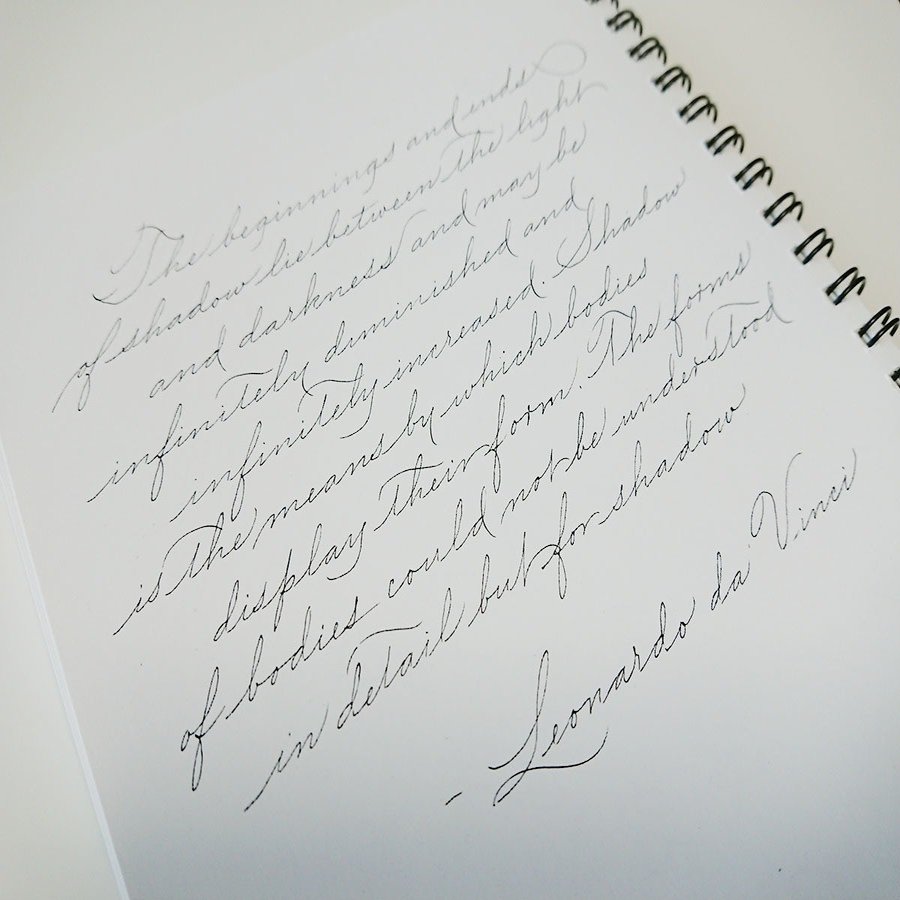 The beginnings and ends
of shadow lie between the light
and darkness and may be
infinitely diminished and
infinitely increased. Shadow
is the means by which bodies
display their form. The forms
of bodies could not be understood
in detail but for shadow
- Leonardo da Vinci